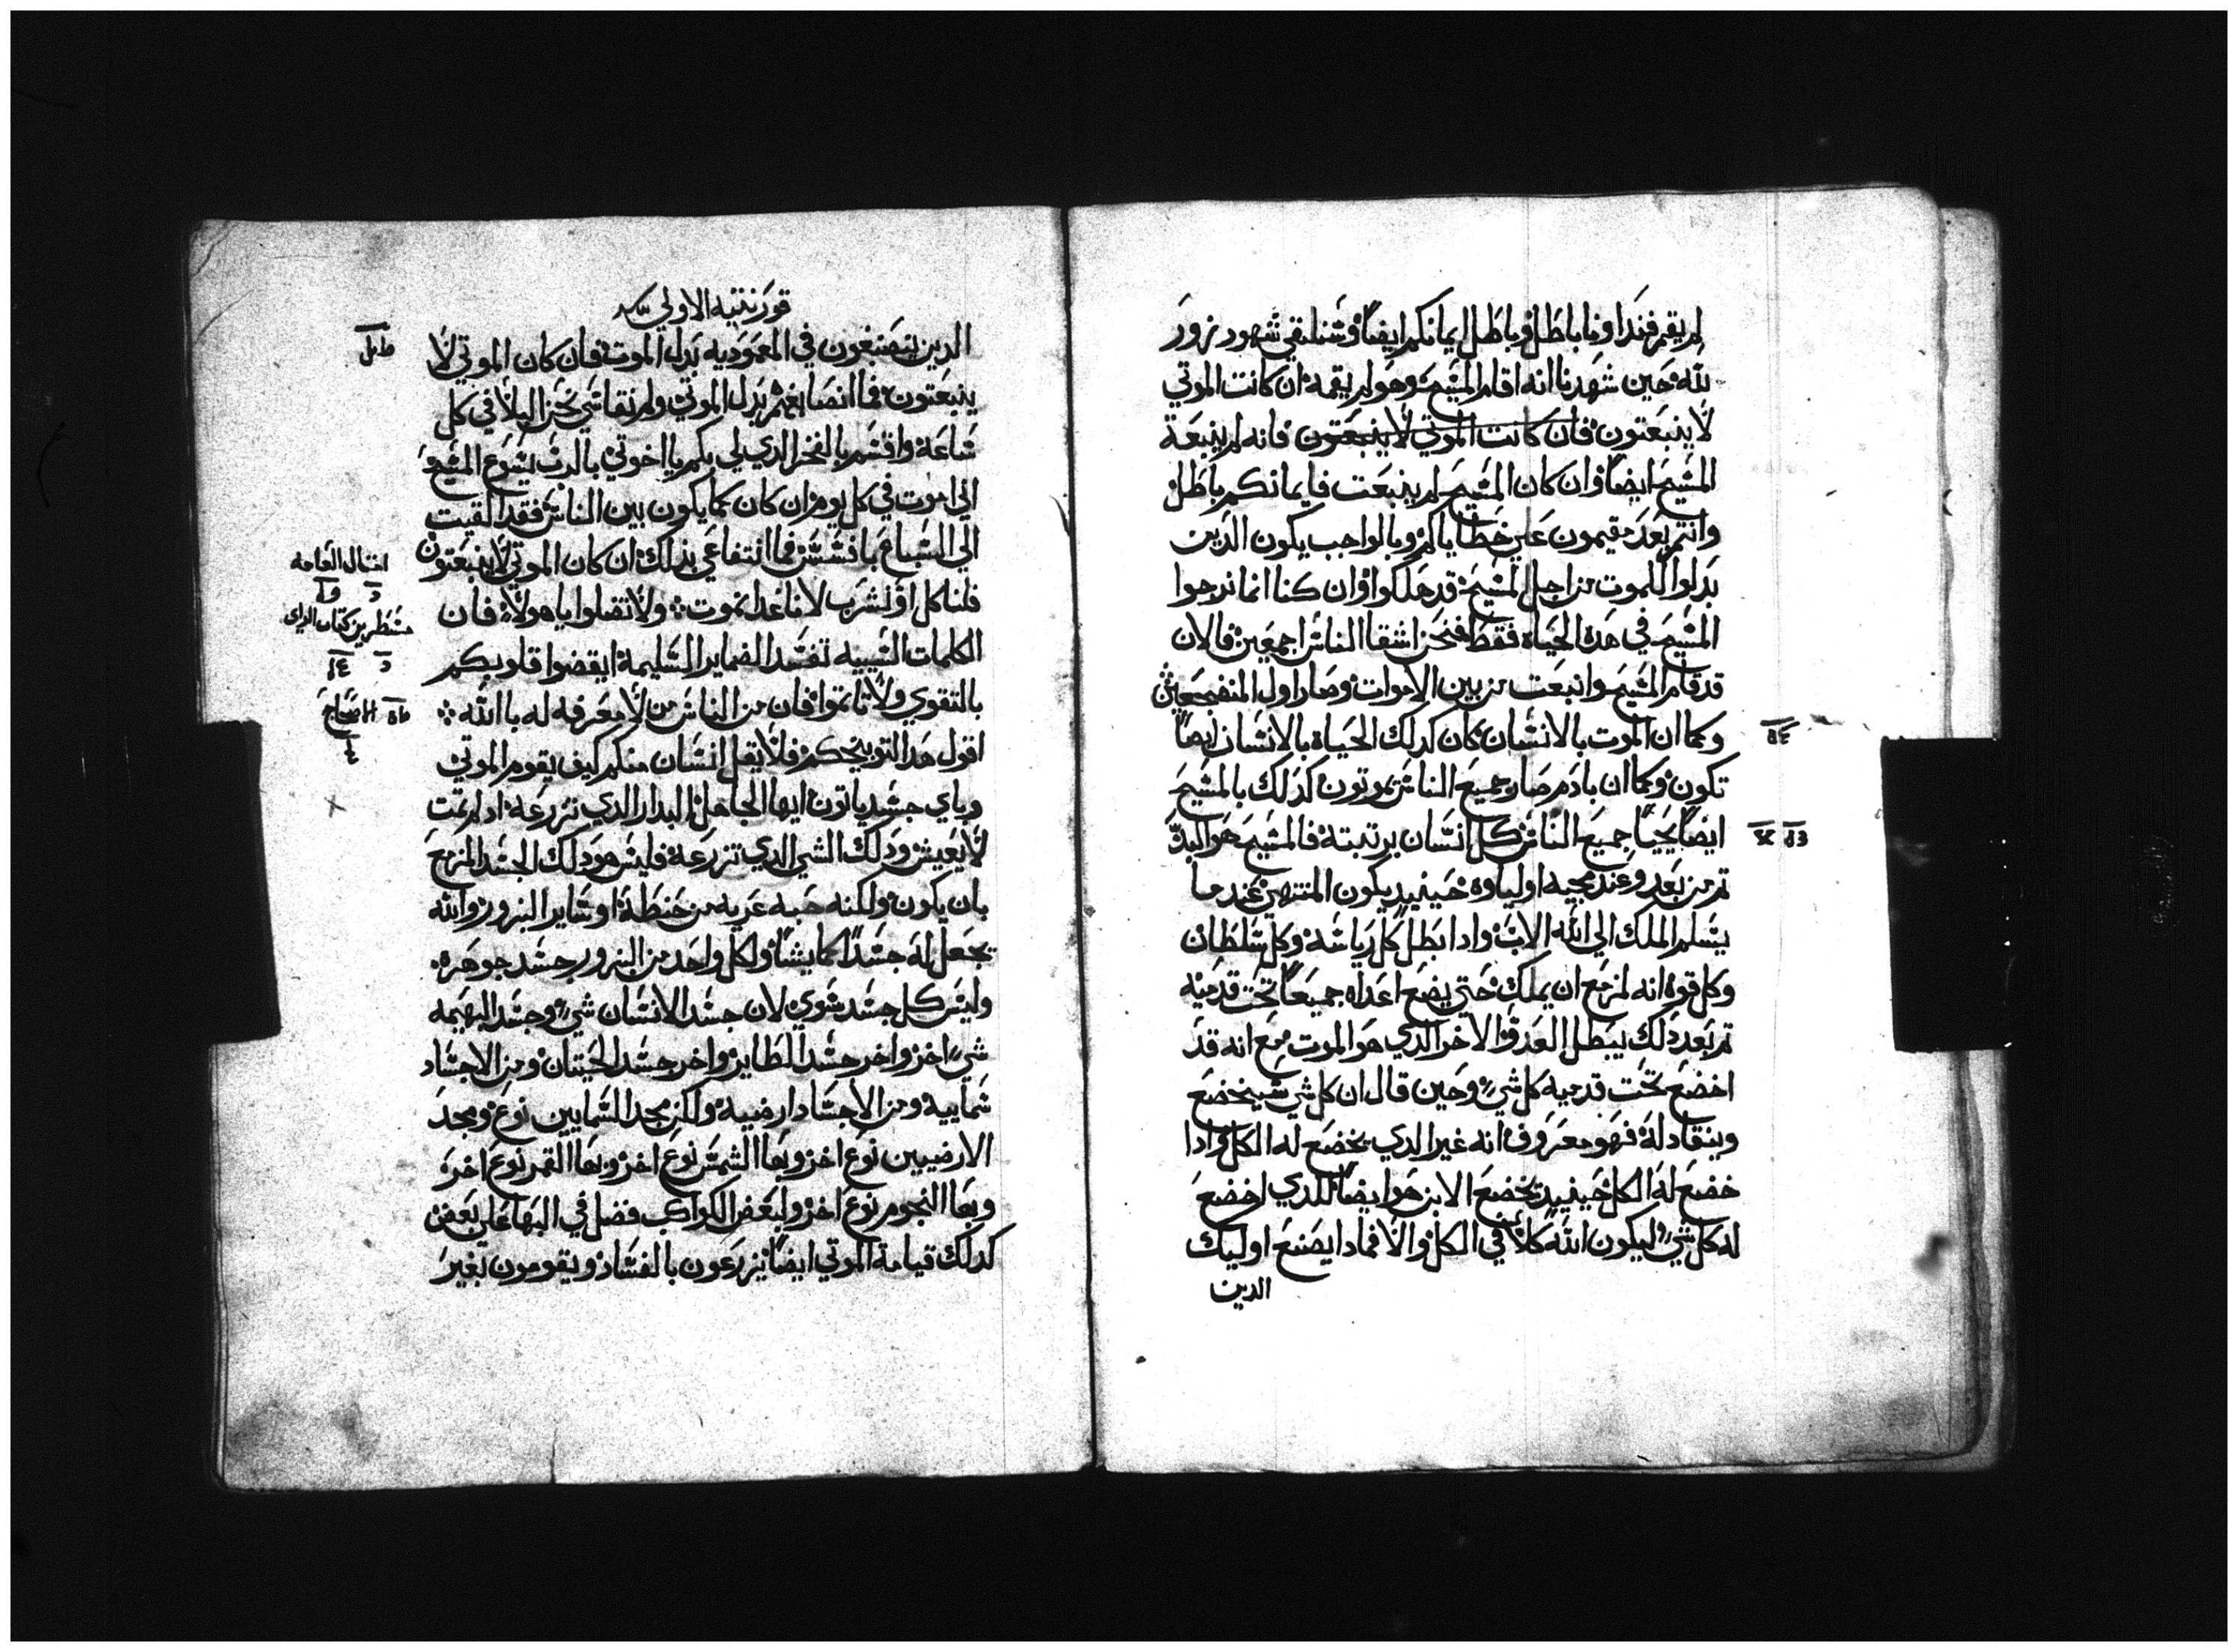 لم يقم فنداونا باطل وباطل ايمانكم ايضا وسنلتقي شهود زور
لله حين شهدنا انه اقام المسيح وهو لم يقمه ان كانت الموتي
لا ينبعتون فان كانت الموتي لا ينبعتون فانه لم ينبعة
المسيح ايضا وان كان المسيح لم ينبعت فايمانكم باطل
وانتم بعد مقيمون علي خطاياكم وبالواجب يكون الدين
بدلوا للموت من اجل المسيح قد هلكوا وان كنا انما نرجوا
المسيح في هده الحياه فقط فنحن اشقا الناس اجمعين فالان
قد قام المسيح وانبعت من بين الاموات وصار اول المضجعين
وكما ان الموت بالانسان كان كدلك الحياة بالانسان ايضا
تكون وكما ان بادم صار جميع الناس يموتون كدلك بالمسيح
ايضا يحيا جميع الناس كل انسان برتبتة فالمسيح هو البدة
تم من بعد وعند مجيه اولياوه حينيد يكون المنتهي عند ما
يسلم الملك الي الله الاب وادا بطل كل رياسة وكل سلطان
وكل قوة انه لمزمع ان يملك حتي يضع اعداه جميعا تحت قدميه
تم بعد دلك يبطل العدو الاخر الدي هو الموت مع انه قد
اخضع تحت قدميه كل شي وحين قال ان كل شي سيخضع
وينقاد له فهو معروف انه غير الدي يخضع له الكل وادا
خضع له الكل حينيد يخضع الابن هو ايضا للدي اخضع
له كل شي ليكون الله كلا في الكل والا فمادا يصنع اوليك
الدين
قورنتيه الاولي
الدين ينصبغون في المعموديه بدل الموت فان كان الموتي لا
ينبعتون فما انصباغهم بدل الموتي ولم نقاسي نحن البلا في كل
ساعة واقسم بالفخر الدي لي بكم يا اخوتي بالرب يسوع المسيح
اني اموت في كل يوم ان كان كما يكون بين الناس فقد القيت
الي السباع بافسس فما انتفاعي بدلك ان كان الموتي لا ينبعتون
فلناكل اذ نشرب لاننا غدا نموت ولا تضلوا يا هولاء فان
الكلمات السييه تفسد الضماير السليمة ايقضوا قلوبكم
بالتقوي ولا تاتموا فان من الناس من لا معرفه له بالله
اقول هدا لتوبيخكم فلا يقل انسان منكم كيف يقوم الموتي
وباي جسد ياتون ايها الجاهل البدار الدي تزرعة ادا لم تمت
لا يعيش ودلك الشي الدي تزرعة فليس هو دلك الجسد المزمع
بان يكون ولكنه حبه عريه من حنطة او ساير البزور والله
يجعل له جسدا كما يشا ولكل واحد من البزور جسد جوهره
وليس كل جسد سوي لان جسد الانسان شي وجسد البهيمه
شي اخر واخر جسد الطاير واخر جسد الحيتان ومن الاجساد
سماييه ومن الاجساد ارضيه ولكن مجد السماييين نوع ومجد
الارضيين نوع اخر وبها الشمس نوع اخر وبها القمر نوع اخر
وبها النجوم نوع اخر ولبعض الكواكب فضل في البها علي بعض
كدلك قيامة الموتي ايضا يزرعون بالفساد ويقومون بغير